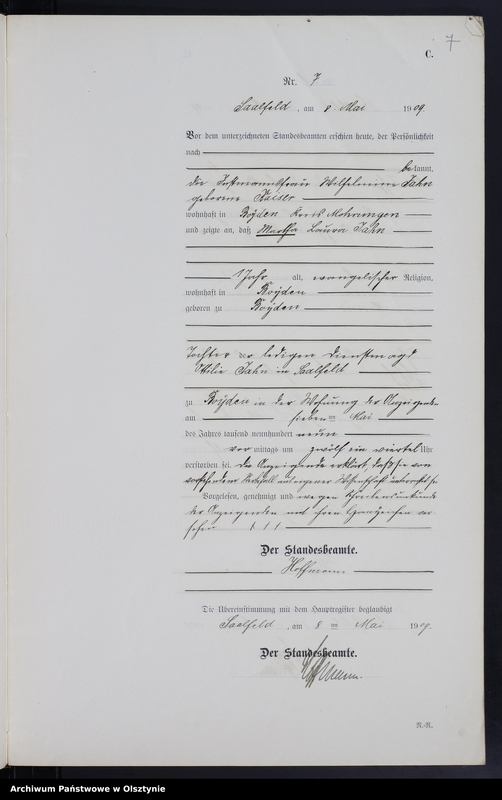 7
C.
Nr. 7
Saalfeld, am 8 Mai 1909.
Vor dem unterzeichneten Standesbeamten erschien heute, der Persönlichkeit
nach
bekannt,
die Wilhelmine Jahn
geborene Kaiser
wohnhaft in Boyden Kreis Mohrungen
und zeigte an, daß Martha Laura Jahn
1 Jahr alt, evangelischer Religion,
wohnhaft in Boyden
geboren zu Boyden
Tochter der ledigen Dienstmagd
Ottilie Jahn in Saalfeld
zu Boyden in der Wohnung der Anzeigenden
am sieben ten Mai
des Jahres tausend neunhundert neun
vor mittags um zwölf ein viertel Uhr
verstorben sei. Die Anzeigende erklärt, daß sie von
vorstehendem Sterbefall aus eigener Wissenschaft unterrichtet sei
Vorgelesen, genehmigt und wegen Schreibensunkunde
der Anzeigenden mit ihren Handzeichen ver
sehen / / /
Der Standesbeamte.
Hoffmann
Die Übereinstimmung mit dem Hauptregister beglaubigt
Saalfeld, am 8 ten Mai 1909.
Der Standesbeamte.
Hoffmann.
R.-R.
Archiwum Państwowe w Olsztynie